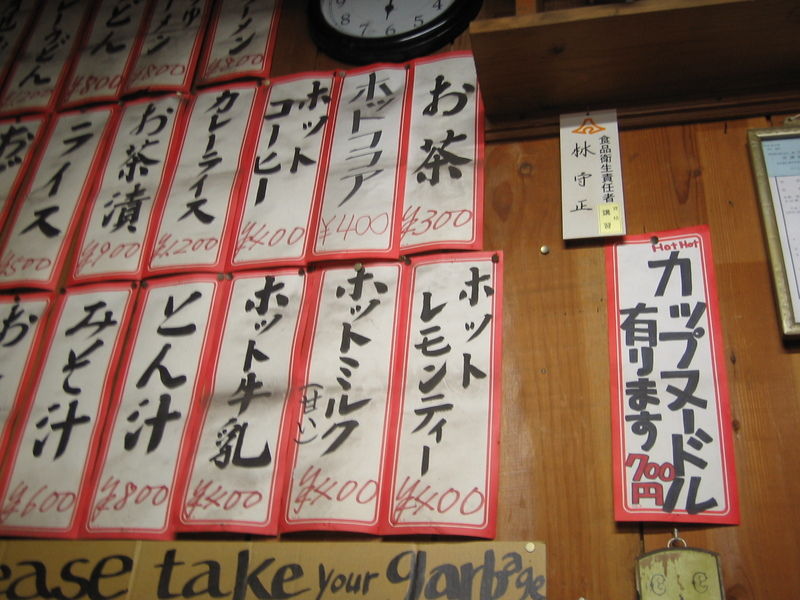 9
8
7
6
5
4
¥800
¥800
¥800
お茶
¥300
ホットココア
¥400
ホット
コーヒー
¥400
カレーライス
¥1,200
お茶漬
¥900
ライス
¥500
ホット
レモンティー
¥400
ホットミルク
(甘い)
¥400
ホット牛乳
¥400
とん汁
¥800
みそ汁
¥600
食品衛生責任者
林守正
講習
Hot Hot
カップヌードル
有ります
700円
ease take your garbage